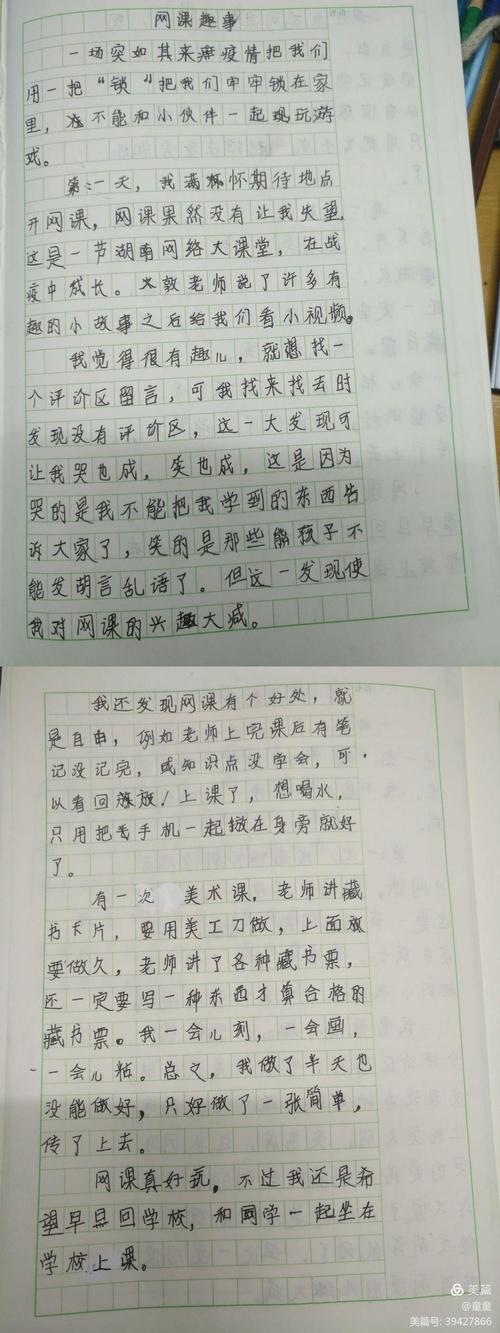 网课趣事
一场突如其来疫情把我们
用一把“锁”把我们牢牢锁在家
里，不能和小伙伴一起玩游
戏。
第一天，我满怀期待地点
开网课，网课果然没有让我失望，
这是一节湖南网络大课堂，在战
疫中成长。教老师说了许多有
趣的小故事之后给我们看小视频。
我觉得很有趣儿，就想找一
个评价区留言，可我找来找去时
发现没有评价区，这一大发现可
让我哭也成，笑也成，这是因为
哭的是我不能把我学到的东西告
诉大家了，笑的是那些熊孩子不
能发胡言乱语了。但这一发现使
我对网课的兴趣大减。
我还发现网课有个好处，就
是自由，例如老师上完课后有笔
记没记完，或知识点没学会，可
以看回放！上课了，想喝水，
只用把手机一起放在身旁就好
了。
有一次美术课，老师讲藏
书卡片，要用美工刀做，上面放
要做久，老师讲了各种藏书票，
还一定要写一种东西才算合格的
藏书票。我一会儿刻，一会画，
一会儿粘。总之，我做了半天也
没能做好，只好做了一张简单，
传了上去。
网课真好玩，不过我还是希
望早点回学校，和同学一起坐在
学校上课。
美篇
@童童
美篇号: 39427866